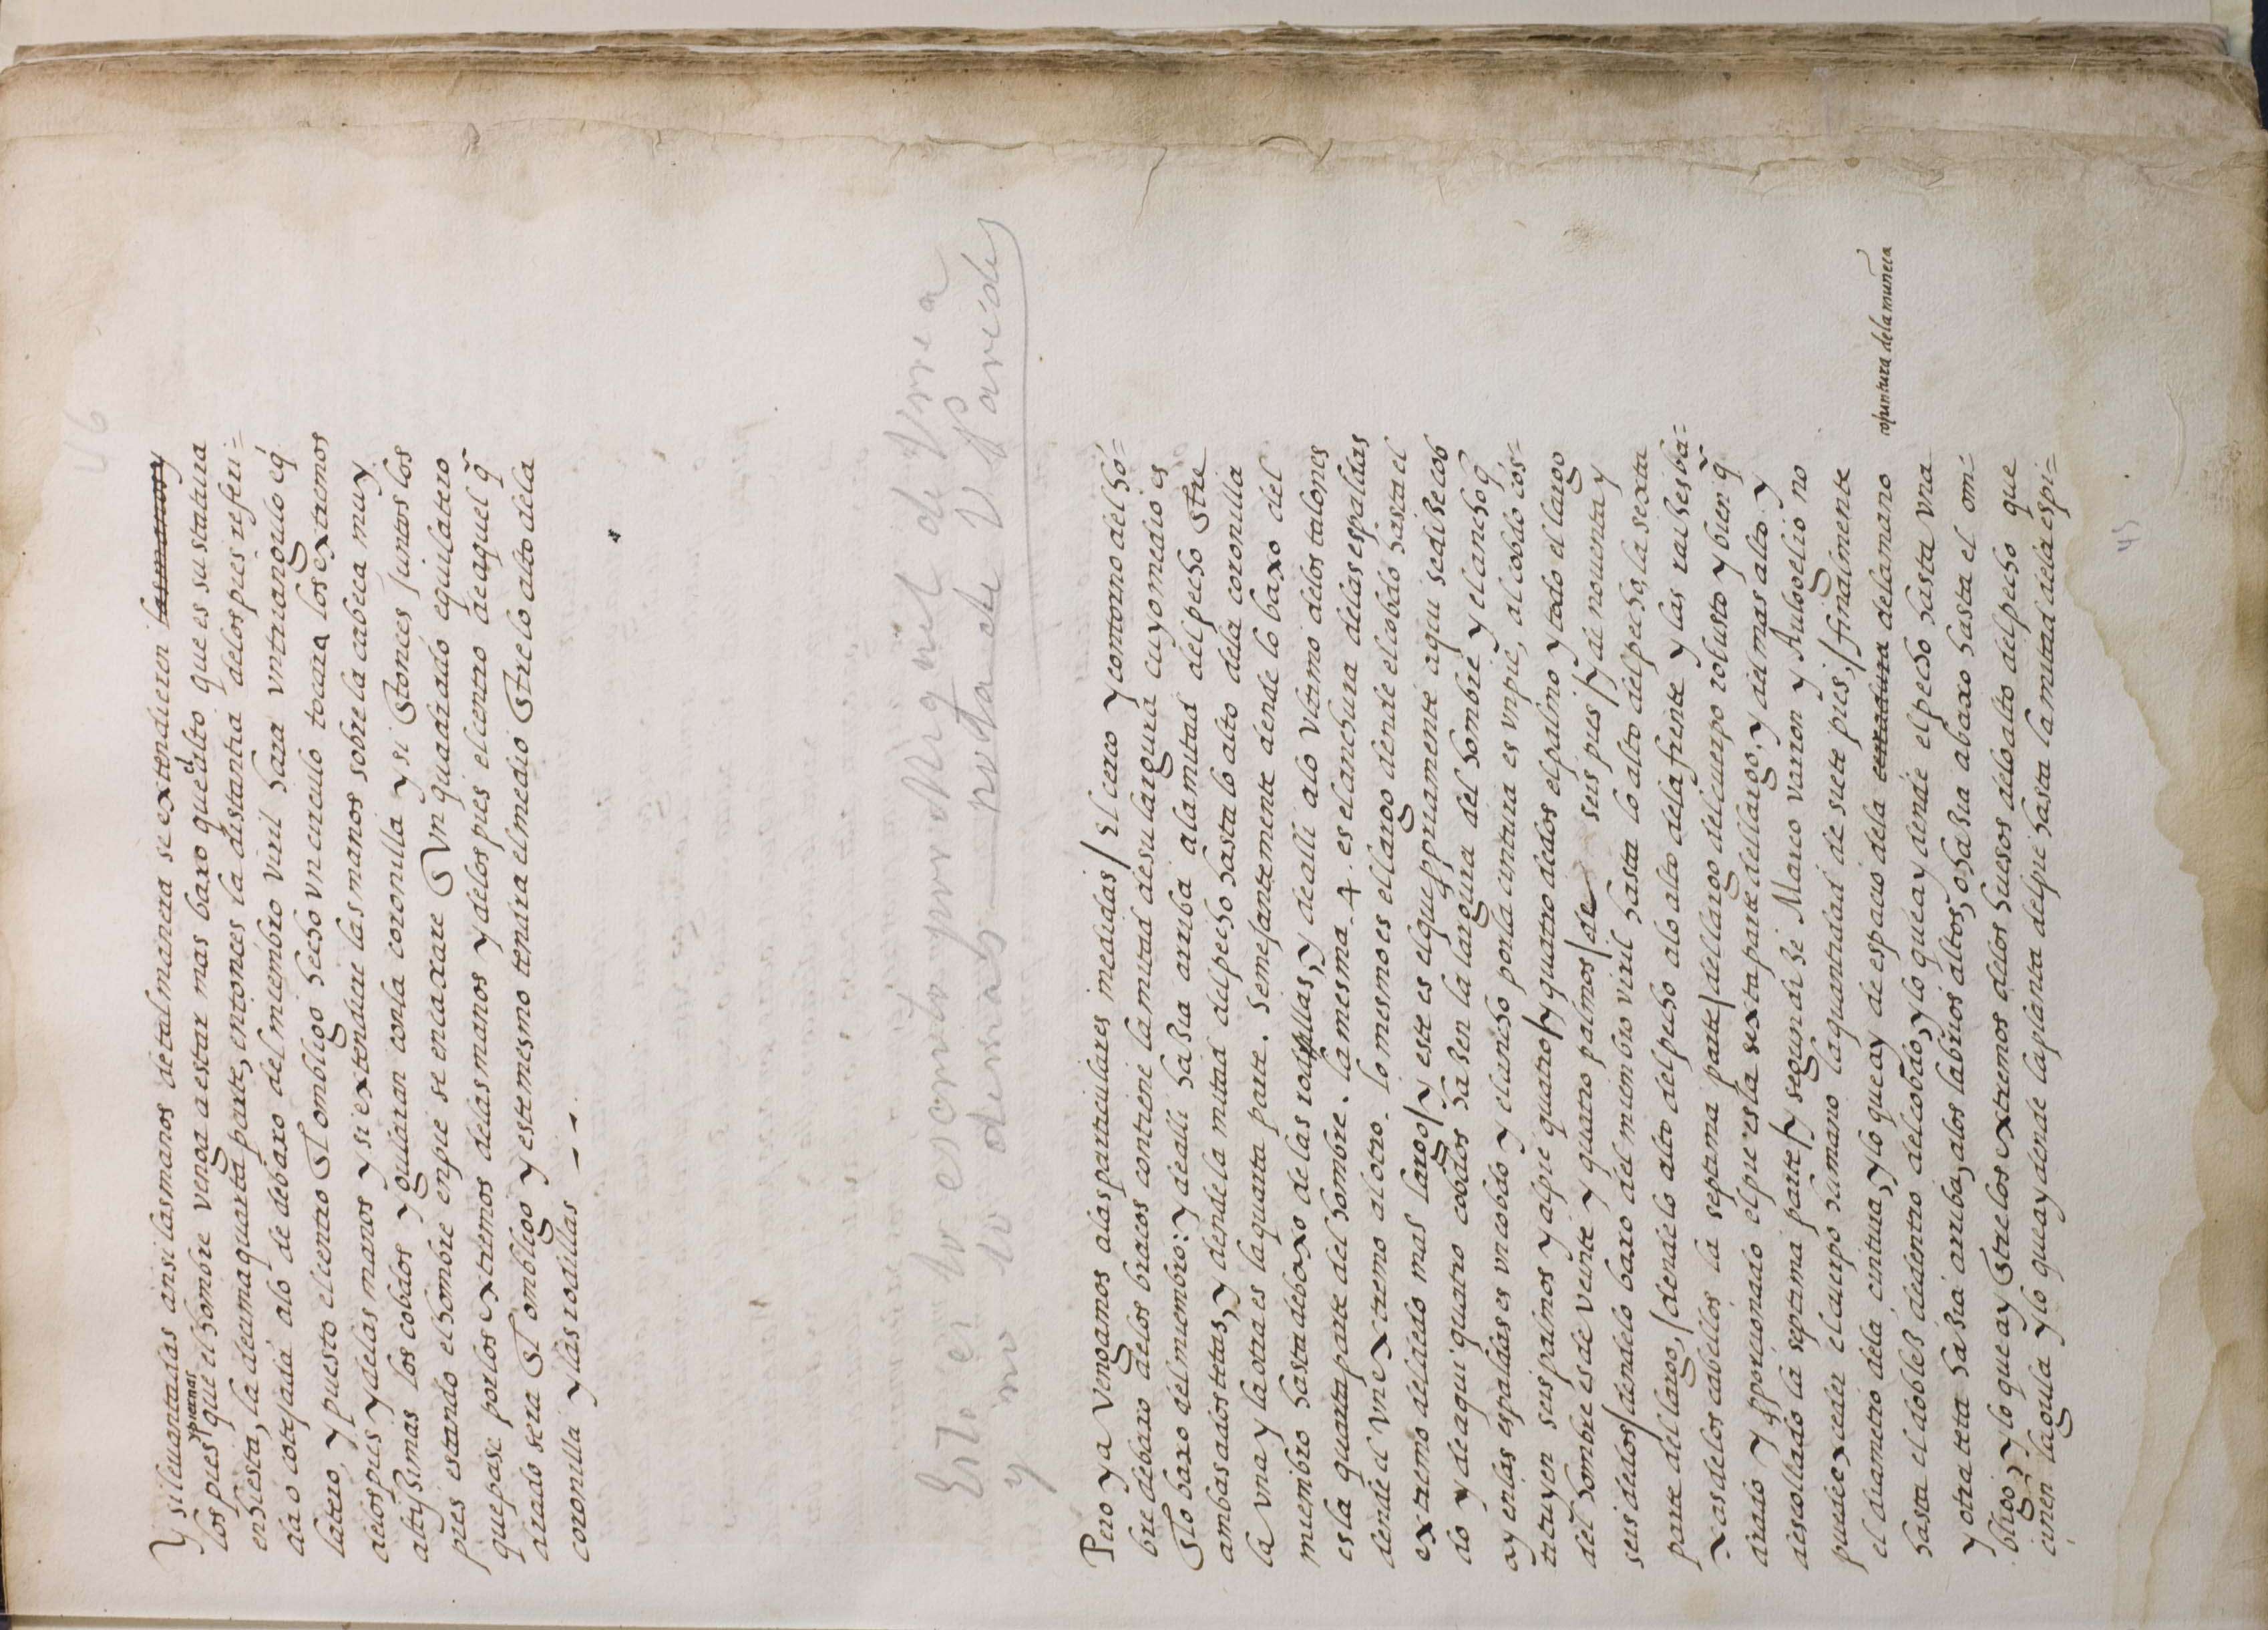 46
Y si leuantadas ansi las manos de tal manera se extendieren las manos y
los pies y piernas que el hombre venga a estar mas baxo que el alto que es su statura
enhiesta, la deçima quarta parte, entonçes la distantia de los pies referi=
da o cotejada alo de debaxo del miembro viril hara vn triangulo eq̃
latero, y puesto el çentro El ombligo hecho vn circulo tocara los extremos
de los pies y de las manos y si extendiere las manos sobre la cabeça muy
altissimas los cobdos ygularan con la coronilla y si Etonçes juntos los
pies estando el hombre en pie se encaxare En quadrado equilatero
que pase por los extremos de las manos y de los pies el çentro de aquel q̃
drado sera El ombligo y este mesmo tendra el medio Etre lo alto de la
coronilla y las rodillas - -
Esto er lo escrivto por Miguel de Urrea
y no lo demas nota de V Paredes
Pero ya vengamos a las particulares medidas / El çerco y contorno del hó=
bre debaxo de los braços contiene la mitad de su largura cuyo medio es
Elo baxo del miembro: y de alli hazia arriba a la mitad del pecho Etre
ambas ados tetas, y dende la mitad del pecho hasta lo alto dela coronilla
la vna y la otra es la quarta parte. Semejantemente dende lo baxo del
miembro hasta deboxo de las rodillas, y de alli alo vltimo delos talones
es la quarta parte del hombre. la mesma .4. es el anchura delas espaldas
dende el vn extremo al otro. lo mesmo es el largo dende el cobdo hasta el
extremo del dedo mas largo / y este es el que ppriamente aqui se dize cob
do y de aqui quatro cobdos hazen la largura del hombre y el ancho q̃
ay en las espaldas es vn cobdo y el ancho por la cintura es vn pie, al cobdo cós=
tituyen seis palmos y al pie quatro / y quatro dedos el palmo y todo el largo
del hombre es de veinte y quatro palmos / de seis pies / y de nouenta y
seis dedos / dende lo baxo del miembro viril hasta lo alto del pecho, la sexta
parte del largo, / dende lo alto del pecho alo alto dela frente y las raizes ba=
xas delos cabellos la septima parte / del largo del cuerpo robusto y bien q̃
drado y pporcionado el pie es la sexta parte del largo, y del mas alto y
descollado la septima parte / y segun dize Marco varron y Aulogelio no
puede exceder el cuerpo humano la quantidad de siete pies, / finalmente
el diametro dela cintura, y lo que ay de espacio dela cerradura dela mano
o juntura dela muñeca
hasta el doblez de dentro del cobdo, y lo que ay dende el pecho hasta vna
y otra teta hazia arriba, alos labrios altos, o hazia abaxo hasta el om=
bligo, y lo que ay Etre los extremos delos huesos delo alto del pecho que
ciñen la gula y lo que ay dende la planta del pie hasta la mitad dela espi=
45